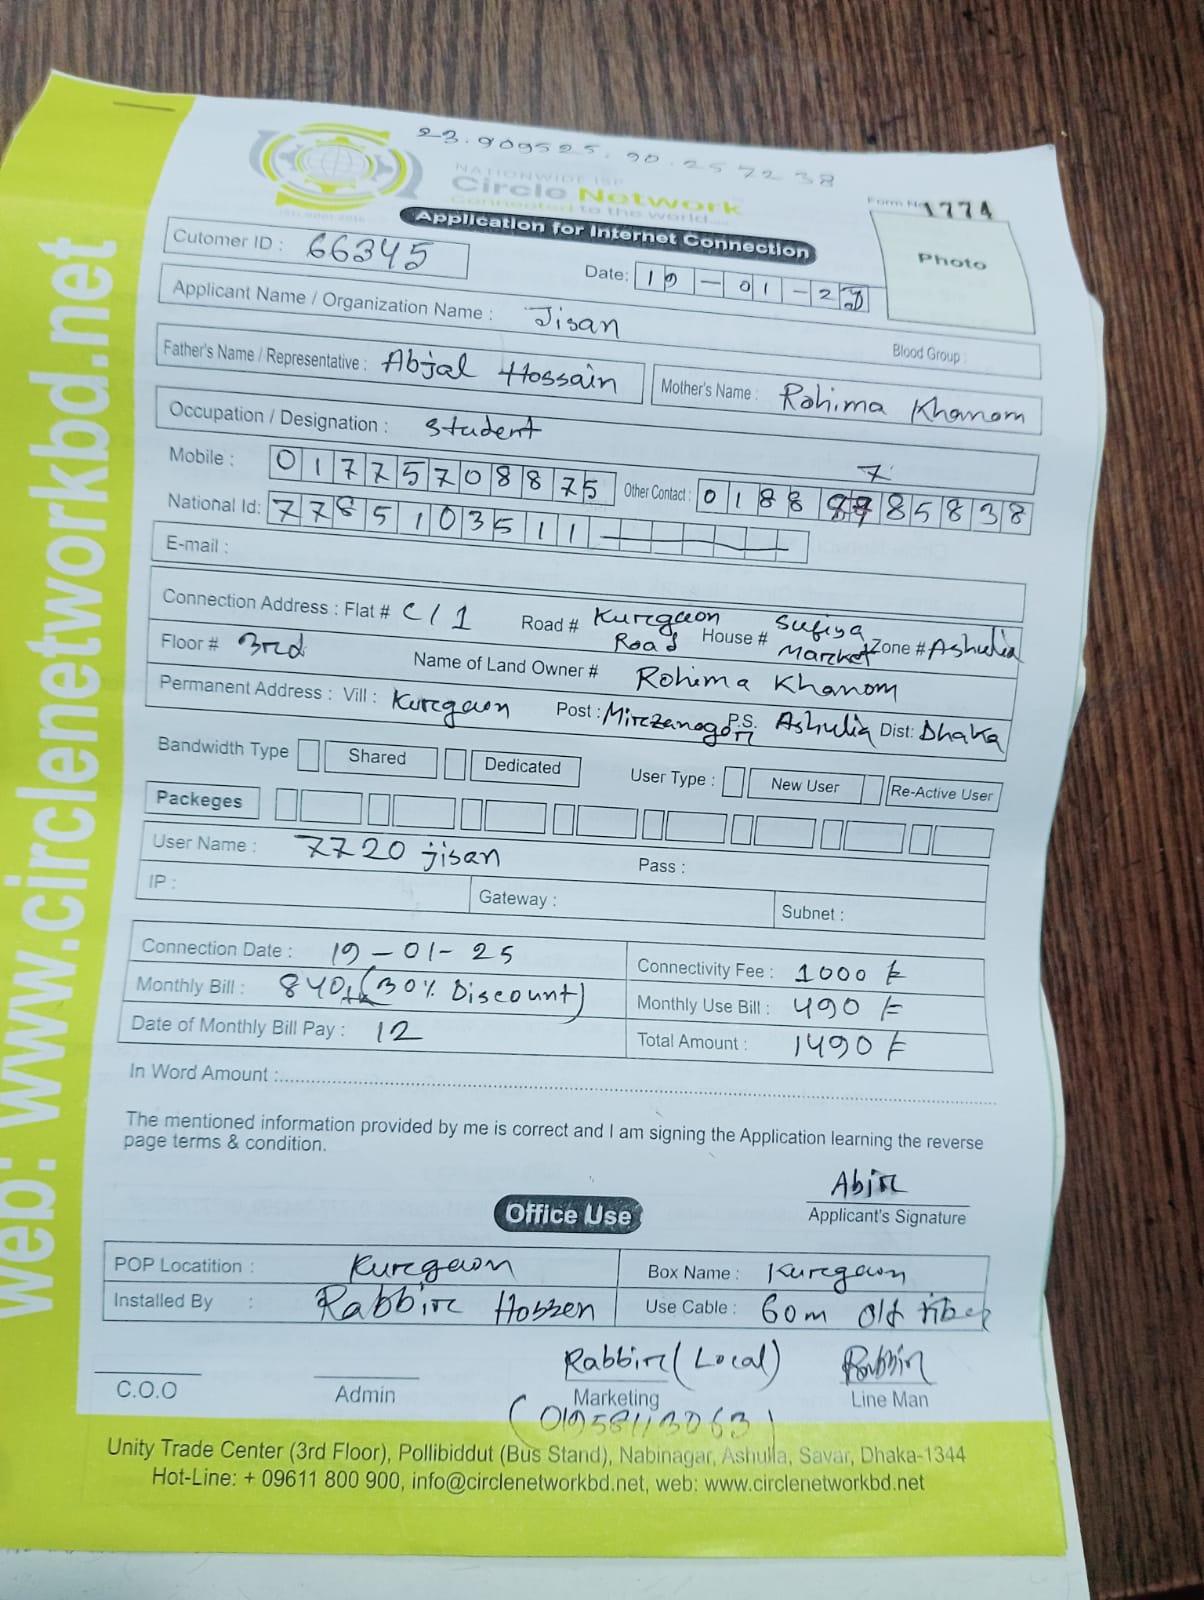 23.909525.90.257238
NATIONWIDE ISP
Circle Network
Connected to the world...
Form No 1774
Application for Internet Connection
Photo
Cutomer ID : 66345
Date: 19-01-25
Applicant Name / Organization Name : Jisan
Blood Group :
Father's Name / Representative : Abjal Hossain
Mother's Name : Rohima Khanom
Occupation / Designation : Student
Mobile : 01775708875
Other Contact : 0188 85838
7
National Id: 7785103511
E-mail :
Connection Address : Flat # C/1 Road # Kurgaon Road House # Sufiya Market Zone # Ashulia
Floor # 3rd Name of Land Owner # Rohima Khanom
Permanent Address : Vill : Kurgaon Post : Mirzanagor P.S. Ashulia Dist: Dhaka
Bandwidth Type Shared Dedicated User Type : New User Re-Active User
Packeges
User Name : 7720 jisan Pass :
IP : Gateway : Subnet :
Connection Date : 19-01-25 Connectivity Fee : 1000 tk
Monthly Bill : 840tk (30% Discount) Monthly Use Bill : 490 tk
Date of Monthly Bill Pay : 12 Total Amount : 1490 tk
In Word Amount :
The mentioned information provided by me is correct and I am signing the Application learning the reverse
page terms & condition.
Abir
Applicant's Signature
Office Use
POP Locatition : Kurgaon Box Name : Kurgaon
Installed By : Rabbir Hossen Use Cable : 60m old fiber
Rabbir (Local) Rabbir
C.O.O Admin Marketing Line Man
(01958113063)
Unity Trade Center (3rd Floor), Pollibiddut (Bus Stand), Nabinagar, Ashulla, Savar, Dhaka-1344
Hot-Line: + 09611 800 900, info@circlenetworkbd.net, web: www.circlenetworkbd.net
web: www.circlenetworkbd.net